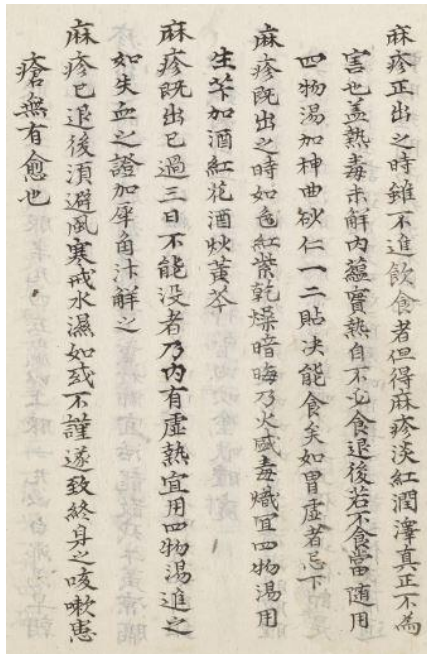 麻疹正出之時雖不進飲食者但得麻疹淡紅潤澤真正不為
害也盖熱毒未解內蘊實熱自不必食退後若不食當隨用
四物湯加神曲砂仁一二貼决能食矣如胃虛者忌下
麻疹既出之時如色紅紫乾燥暗晦乃火盛毒熾宜四物湯用
生芐加酒紅花酒炒黃芩
麻疹既出已過三日不能没者乃內有虛熱宜用四物湯進之
如失血之證加犀角汁解之
麻疹已退後須避風寒戒水濕如或不謹遂致終身之咳嗽患
瘡無有愈也